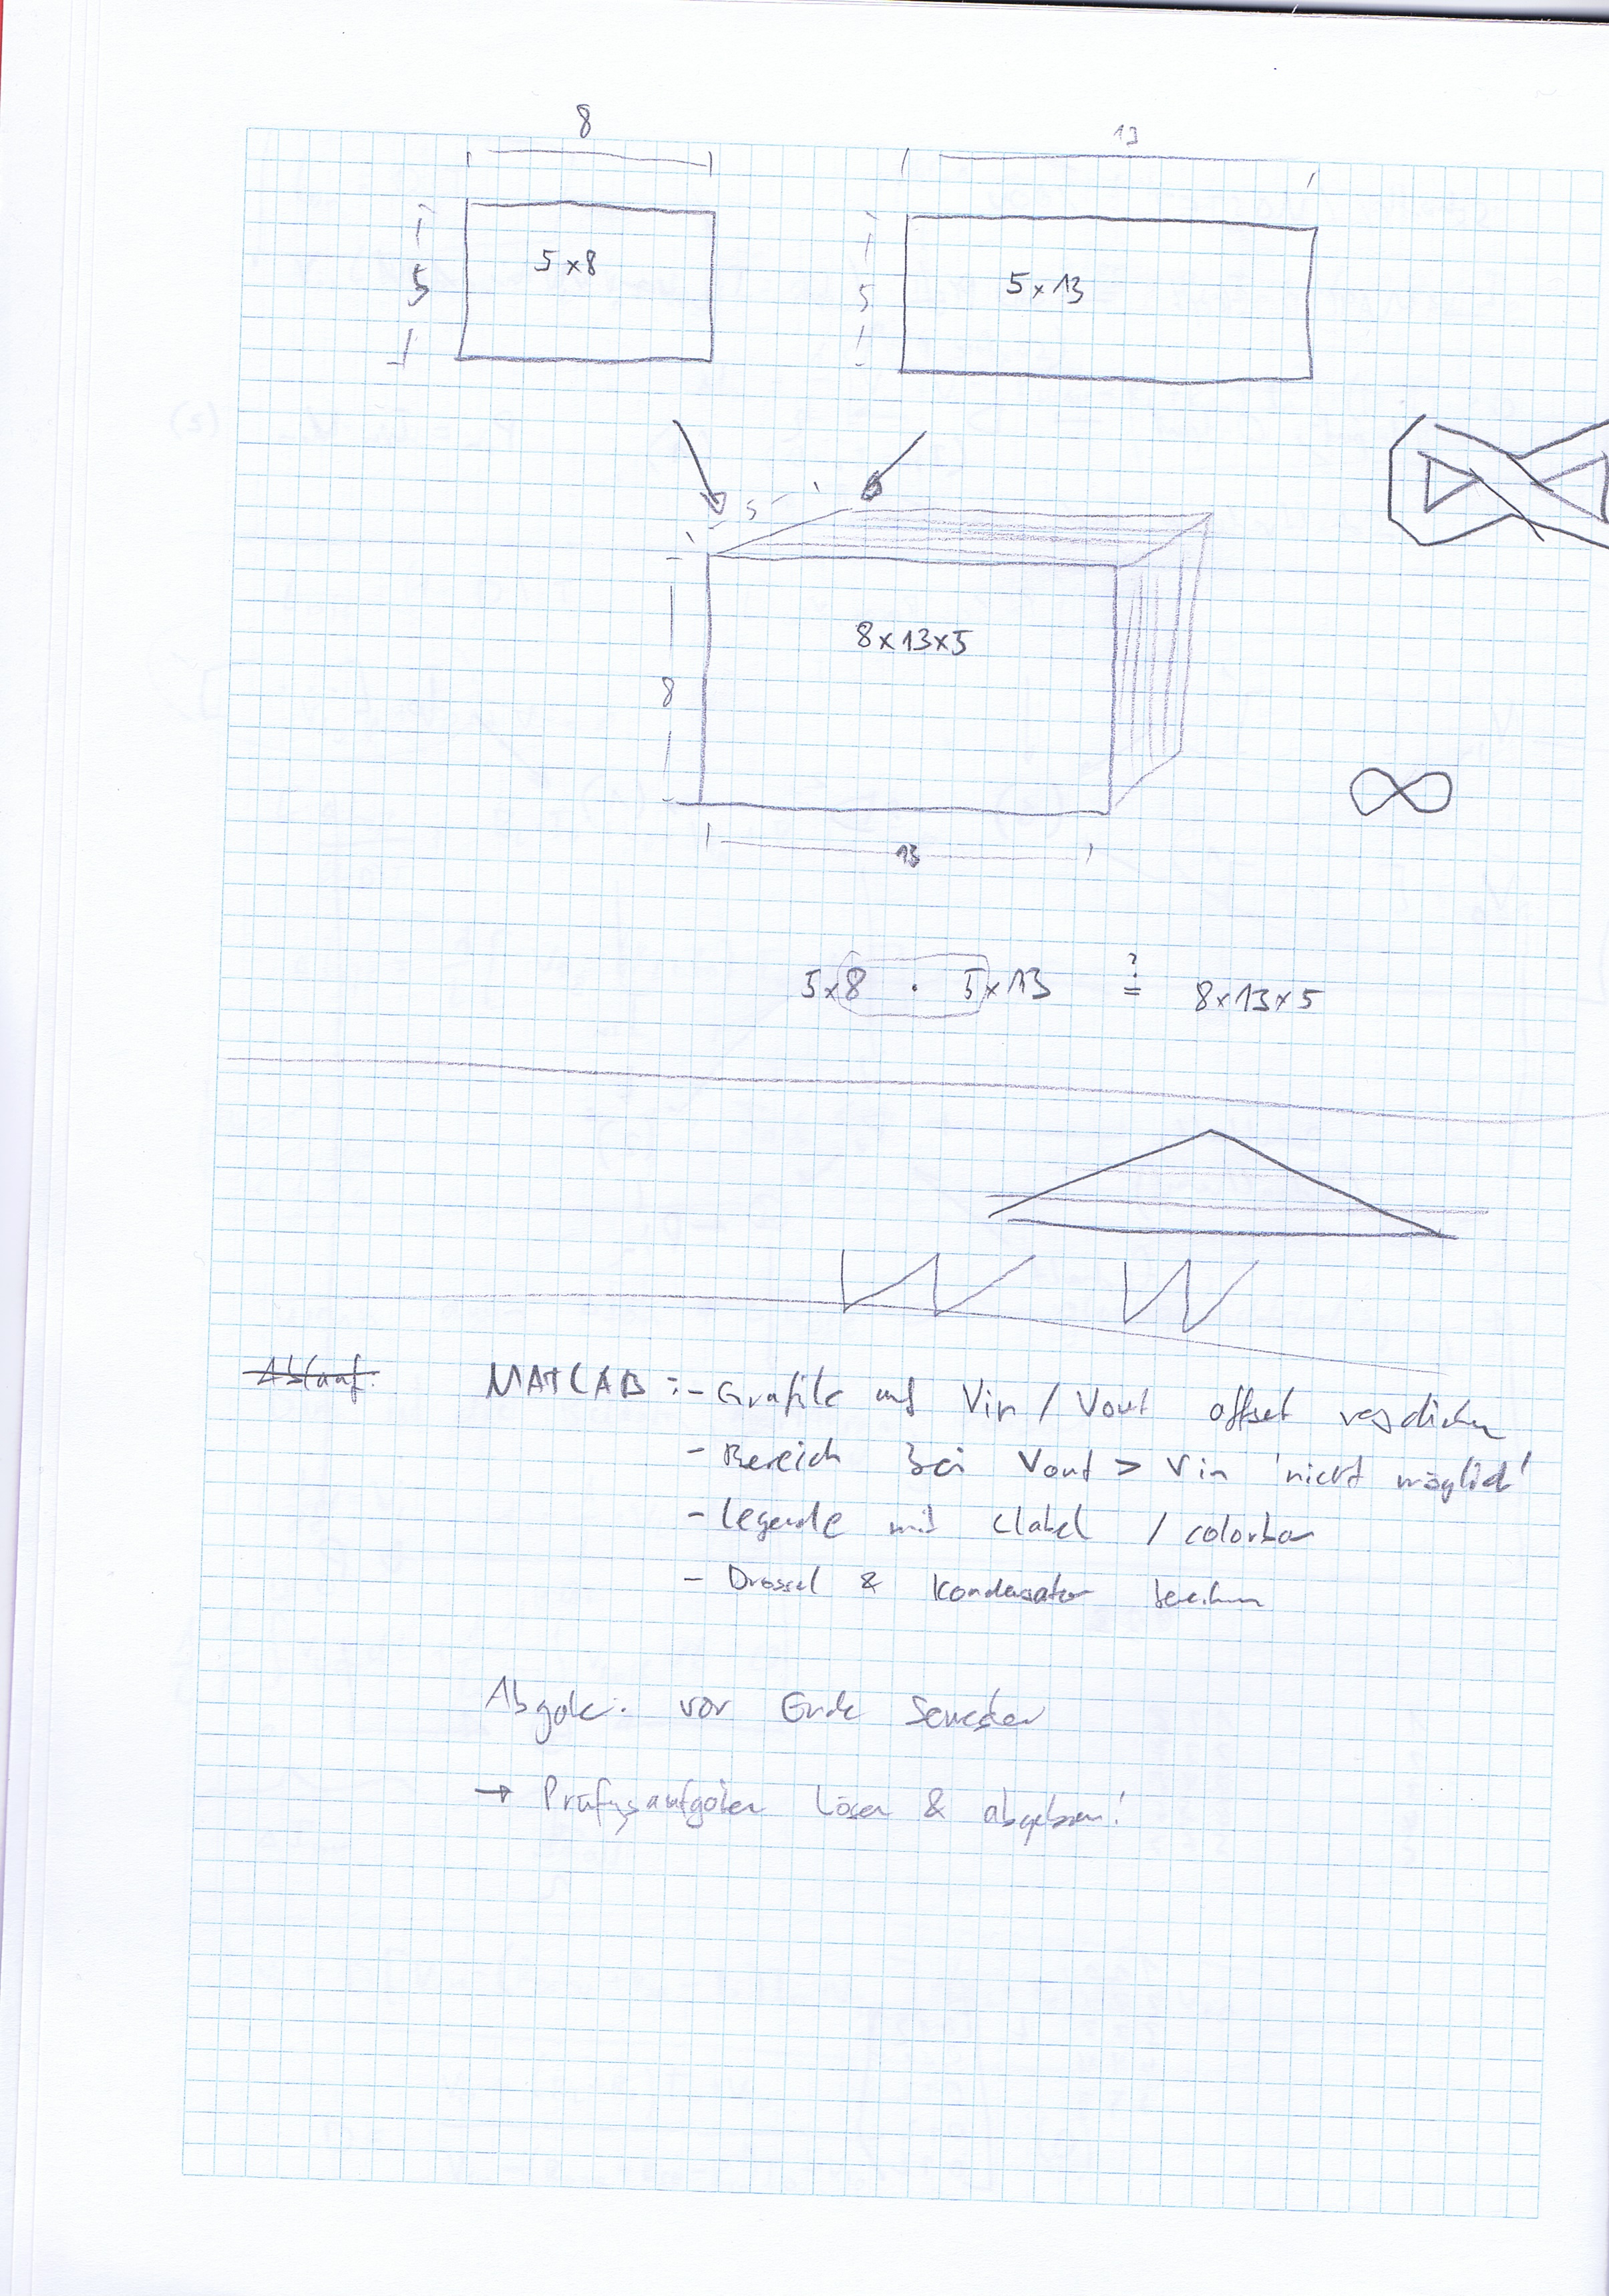 8
13
5
5x8
5
5x13
5
8x13x5
8
13
5x8 · 5x13 ?= 8x13x5
Ablauf:
MATLAB :- Grafik auf Vin / Vout offset vergleichen
- Bereich bei Vout > Vin 'nicht möglich'
- Legende mit clabel / colorbar
- Drossel & Kondensator berechnen
Abgabe: vor Ende Semester
→ Prüfungsaufgaben lösen & abgeben!